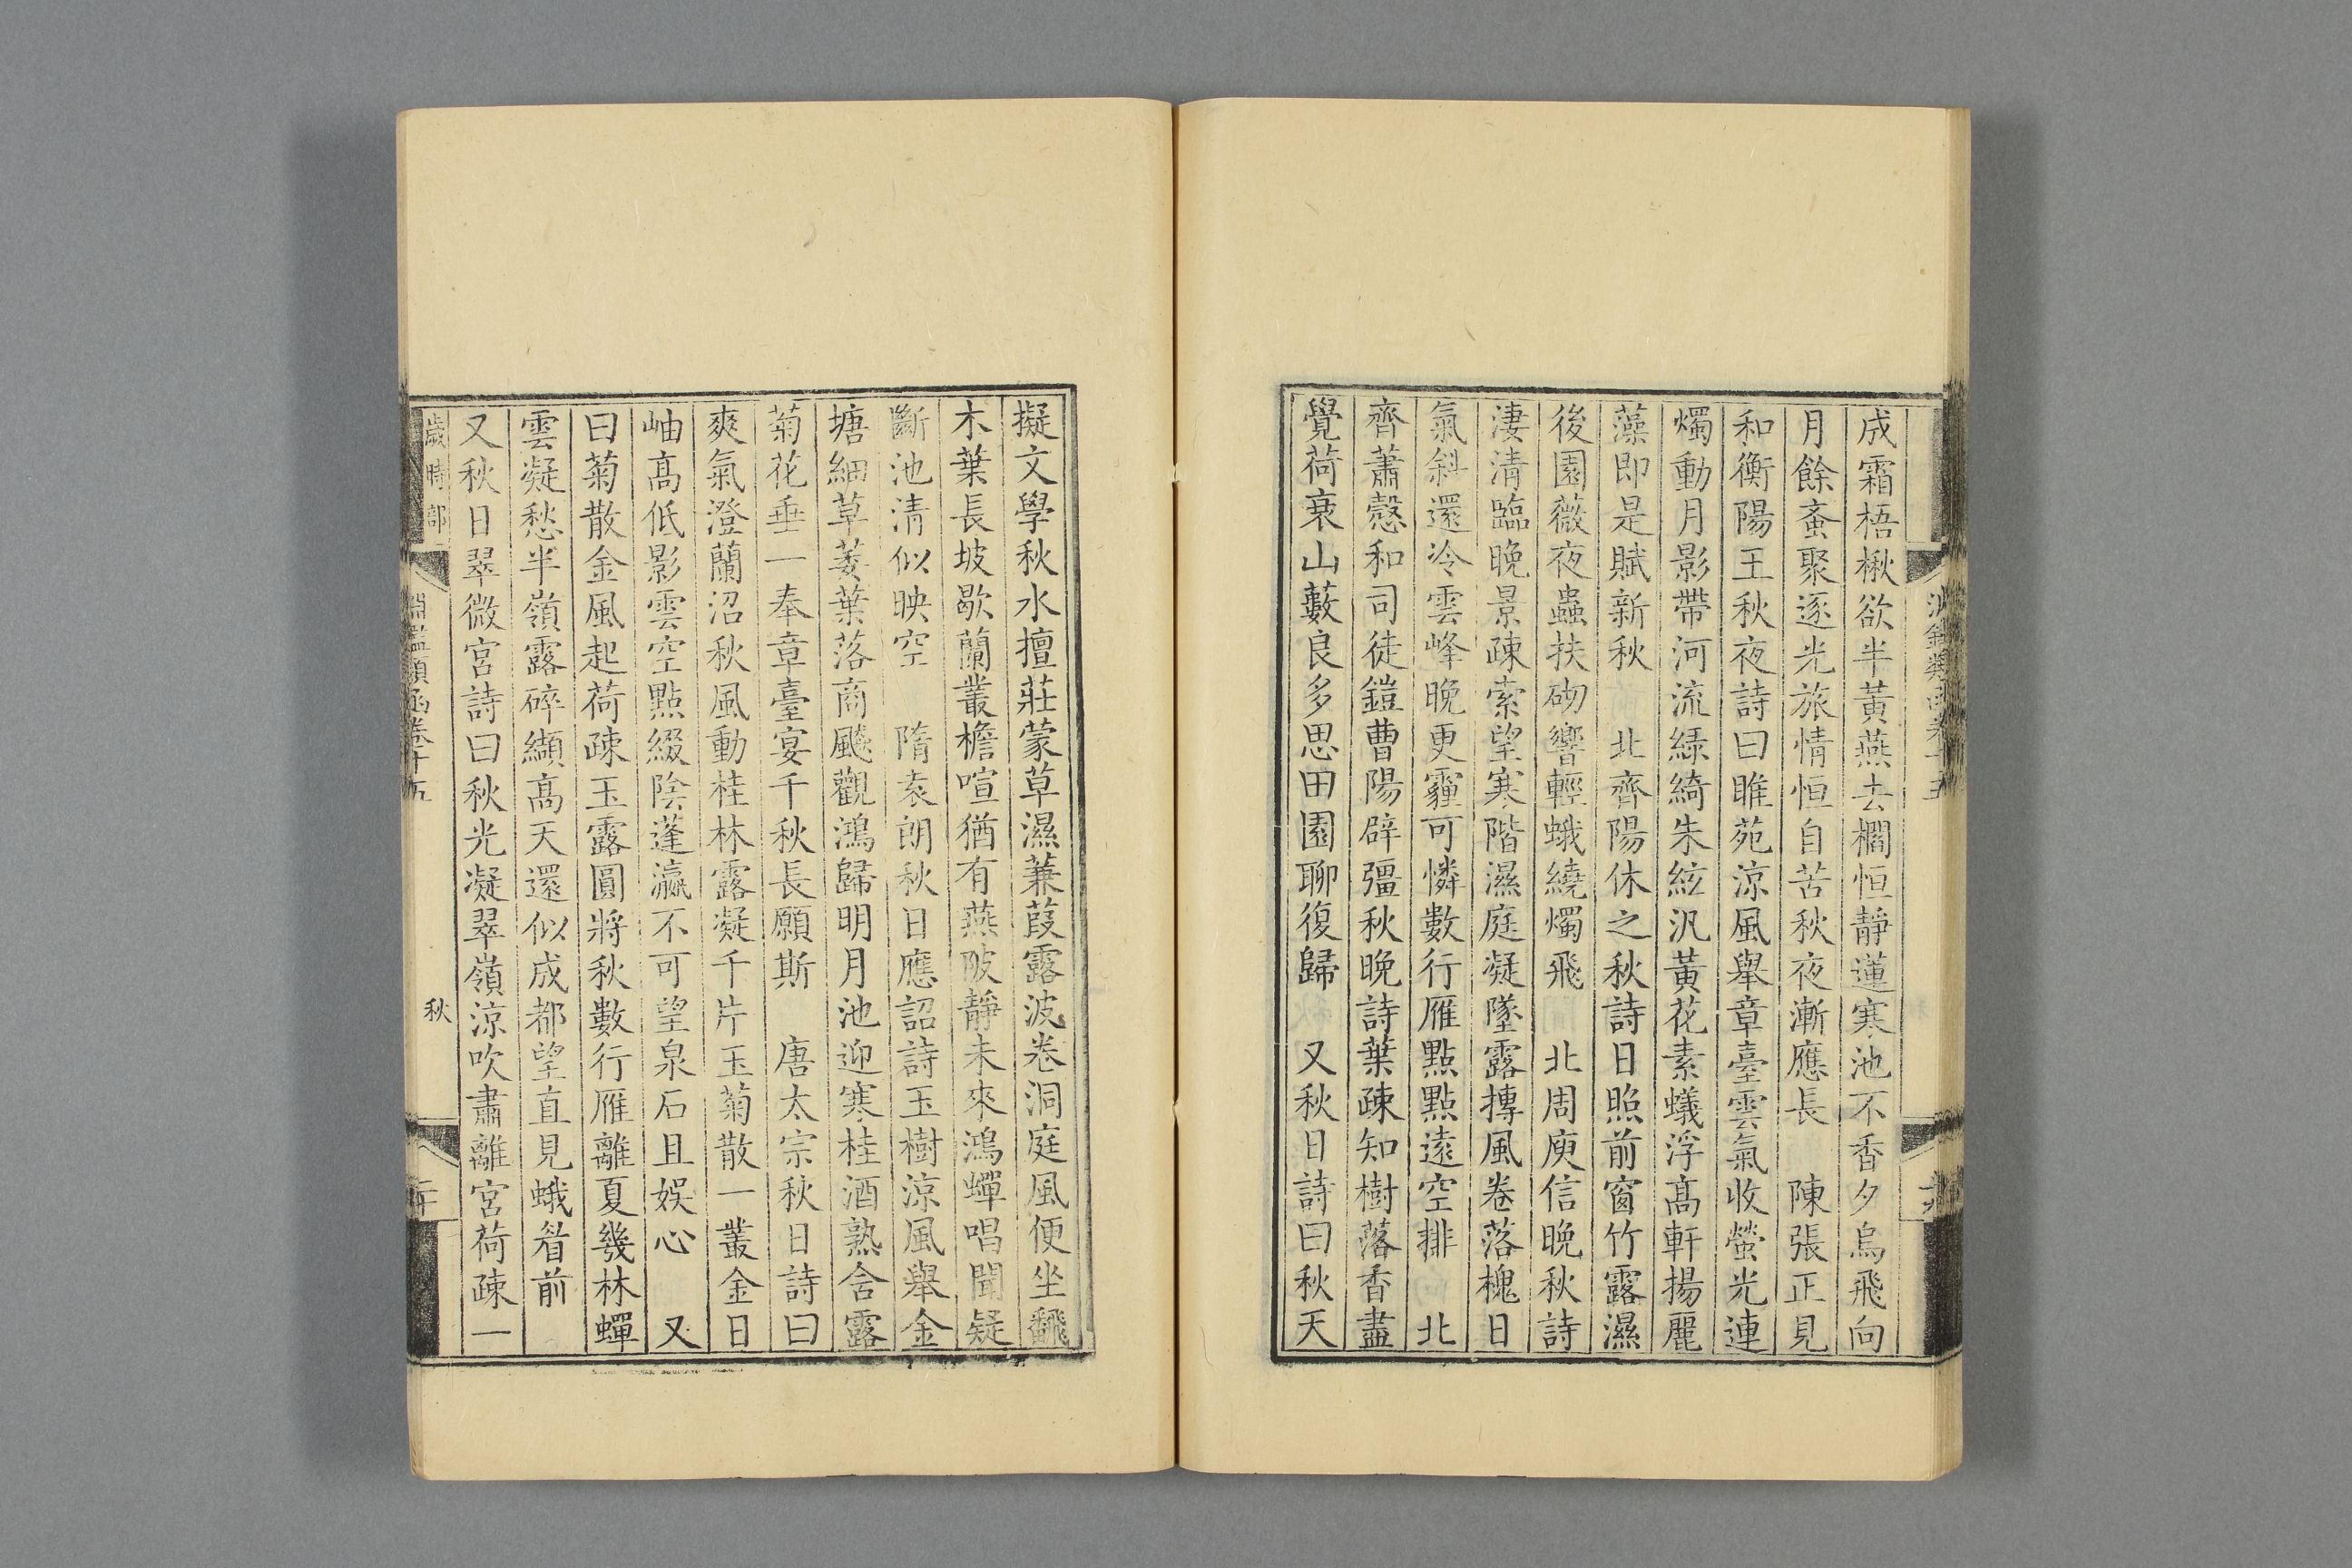 成霜梧楸欲半黃燕去櫩恒靜蓮寒池不香夕烏飛向
月餘蚉聚逐光旅情恒自苦秋夜漸應長　陳張正見
和衡陽王秋夜詩曰睢苑涼風舉章臺雲氣收螢光連
燭動月影帶河流綠綺朱絃汎黃花素蟻浮高軒揚麗
藻即是賦新秋　北齊陽休之秋詩日照前窗竹露濕
後園薇夜蟲扶砌響輕蛾繞燭飛　北周庾信晚秋詩
淒清臨晚景疎索望寒階濕庭凝墜露摶風卷落槐日
氣斜還冷雲峰晚更霾可憐數行雁點點遠空排　北
齊蕭慤和司徒鎧曹陽辟彊秋晚詩葉疎知樹落香盡
覺荷衰山藪良多思田園聊復歸　又秋日詩曰秋天
擬文學秋水擅莊蒙草濕蒹葭露波卷洞庭風便坐翻
木葉長坡歇蘭叢檐喧猶有燕陂靜未來鴻蟬唱聞疑
斷池清似映空　隋袁朗秋日應詔詩玉樹涼風舉金
塘細草萎葉落商飈觀鴻歸明月池迎寒桂酒熟含露
菊花垂一奉章臺宴千秋長願斯　唐太宗秋日詩曰
爽氣澄蘭沼秋風動桂林露凝千片玉菊散一叢金日
岫高低影雲空點綴陰蓬瀛不可望泉石且娛心　又
曰菊散金風起荷疎玉露圓將秋數行雁離夏幾林蟬
雲凝愁半嶺露碎纈高天還似成都望直見蛾眉前
又秋日翠微宮詩曰秋光凝翠嶺涼吹肅離宮荷疎一
歲時部
淵鑑類函卷十五
秋